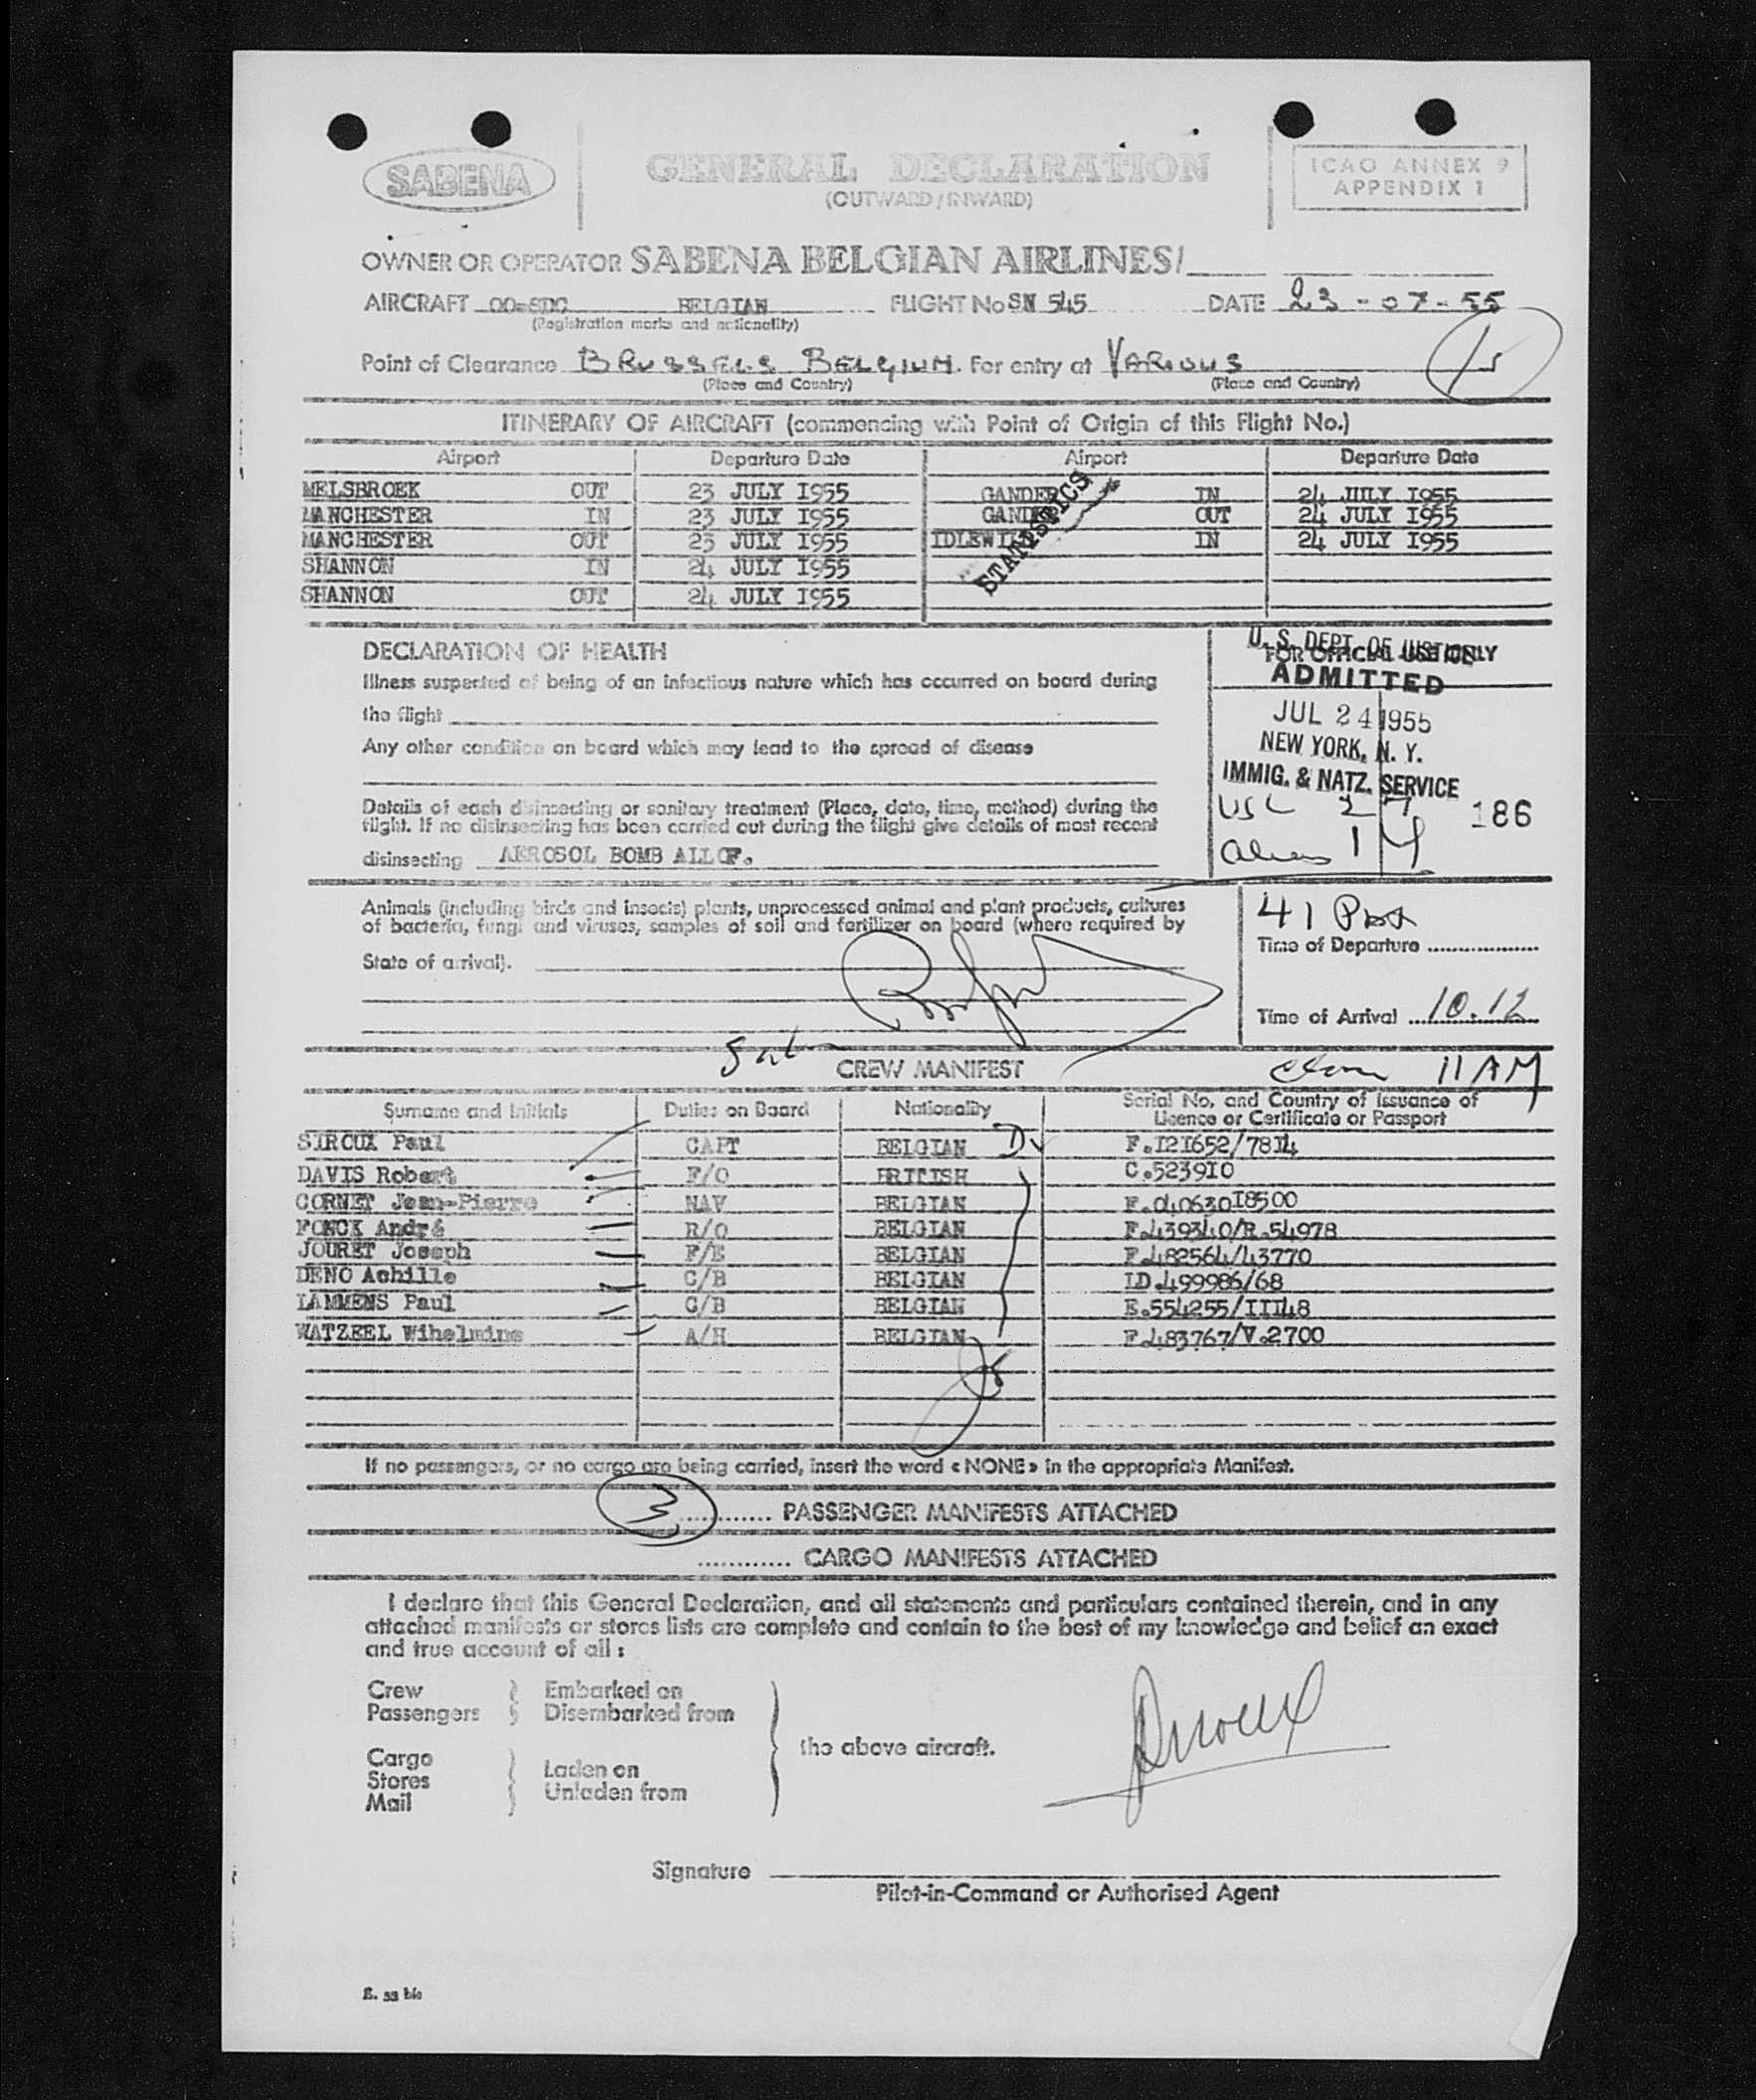 SABENA
GENERAL DECLARATION
(OUTWARD/INWARD)
ICAO ANNEX 9
APPENDIX 1
OWNER OR OPERATOR SABENA BELGIAN AIRLINES/
AIRCRAFT OO-SDC BELGIAN FLIGHT No SN 545 DATE 23-07-55
(Registration marks and nationality)
Point of Clearance BRUSSELS BELGIUM. For entry at VARIOUS
(Place and Country) (Place and Country)
ITINERARY OF AIRCRAFT (commencing with Point of Origin of this Flight No.)
Airport Departure Date Airport Departure Date
MELSBROEK OUT 23 JULY 1955 GANDER IN 24 JULY 1955
MANCHESTER IN 23 JULY 1955 GANDER OUT 24 JULY 1955
MANCHESTER OUT 23 JULY 1955 IDLEWILD IN 24 JULY 1955
SHANNON IN 24 JULY 1955
SHANNON OUT 24 JULY 1955
STATISTICS
DECLARATION OF HEALTH
Illness suspected of being of an infectious nature which has occurred on board during
the flight
Any other condition on board which may lead to the spread of disease
Details of each disinsecting or sanitary treatment (Place, date, time, method) during the
flight. If no disinsecting has been carried out during the flight give details of most recent
disinsecting AEROSOL BOMB ALLOF.
U. S. DEPT. OF JUSTICE
FOR OFFICIAL USE ONLY
ADMITTED
JUL 24 1955
NEW YORK, N. Y.
IMMIG. & NATZ. SERVICE
USC 27
186
Aliens 14
Animals (including birds and insects) plants, unprocessed animal and plant products, cultures
of bacteria, fungi and viruses, samples of soil and fertilizer on board (where required by
State of arrival).
41
Time of Departure
Time of Arrival 10.12
CREW MANIFEST
11 AM
Surname and Initials Duties on Board Nationality Serial No, and Country of Issuance of
Licence or Certificate or Passport
SIROUX Paul CAPT BELGIAN D F.I2I652/78I4
DAVIS Robert F/O BRITISH C.5239I0
CORNET Jean-Pierre NAV BELGIAN F.040630I8500
FONCK André R/O BELGIAN F.439340/R.54978
JOURET Joseph F/E BELGIAN F.482564/43770
DENO Achille C/B BELGIAN ID.499986/68
LAMMENS Paul C/B BELGIAN E.554255/III48
WATZEEL Wihelmine A/H BELGIAN F.483767/V.2700
If no passengers, or no cargo are being carried, insert the word « NONE » in the appropriate Manifest.
3 ............ PASSENGER MANIFESTS ATTACHED
............ CARGO MANIFESTS ATTACHED
I declare that this General Declaration, and all statements and particulars contained therein, and in any
attached manifests or stores lists are complete and contain to the best of my knowledge and belief an exact
and true account of all :
Crew Embarked on
Passengers Disembarked from
the above aircraft.
Cargo
Stores Laden on
Mail Unladen from
Signature
Pilot-in-Command or Authorised Agent
E. 33 bis